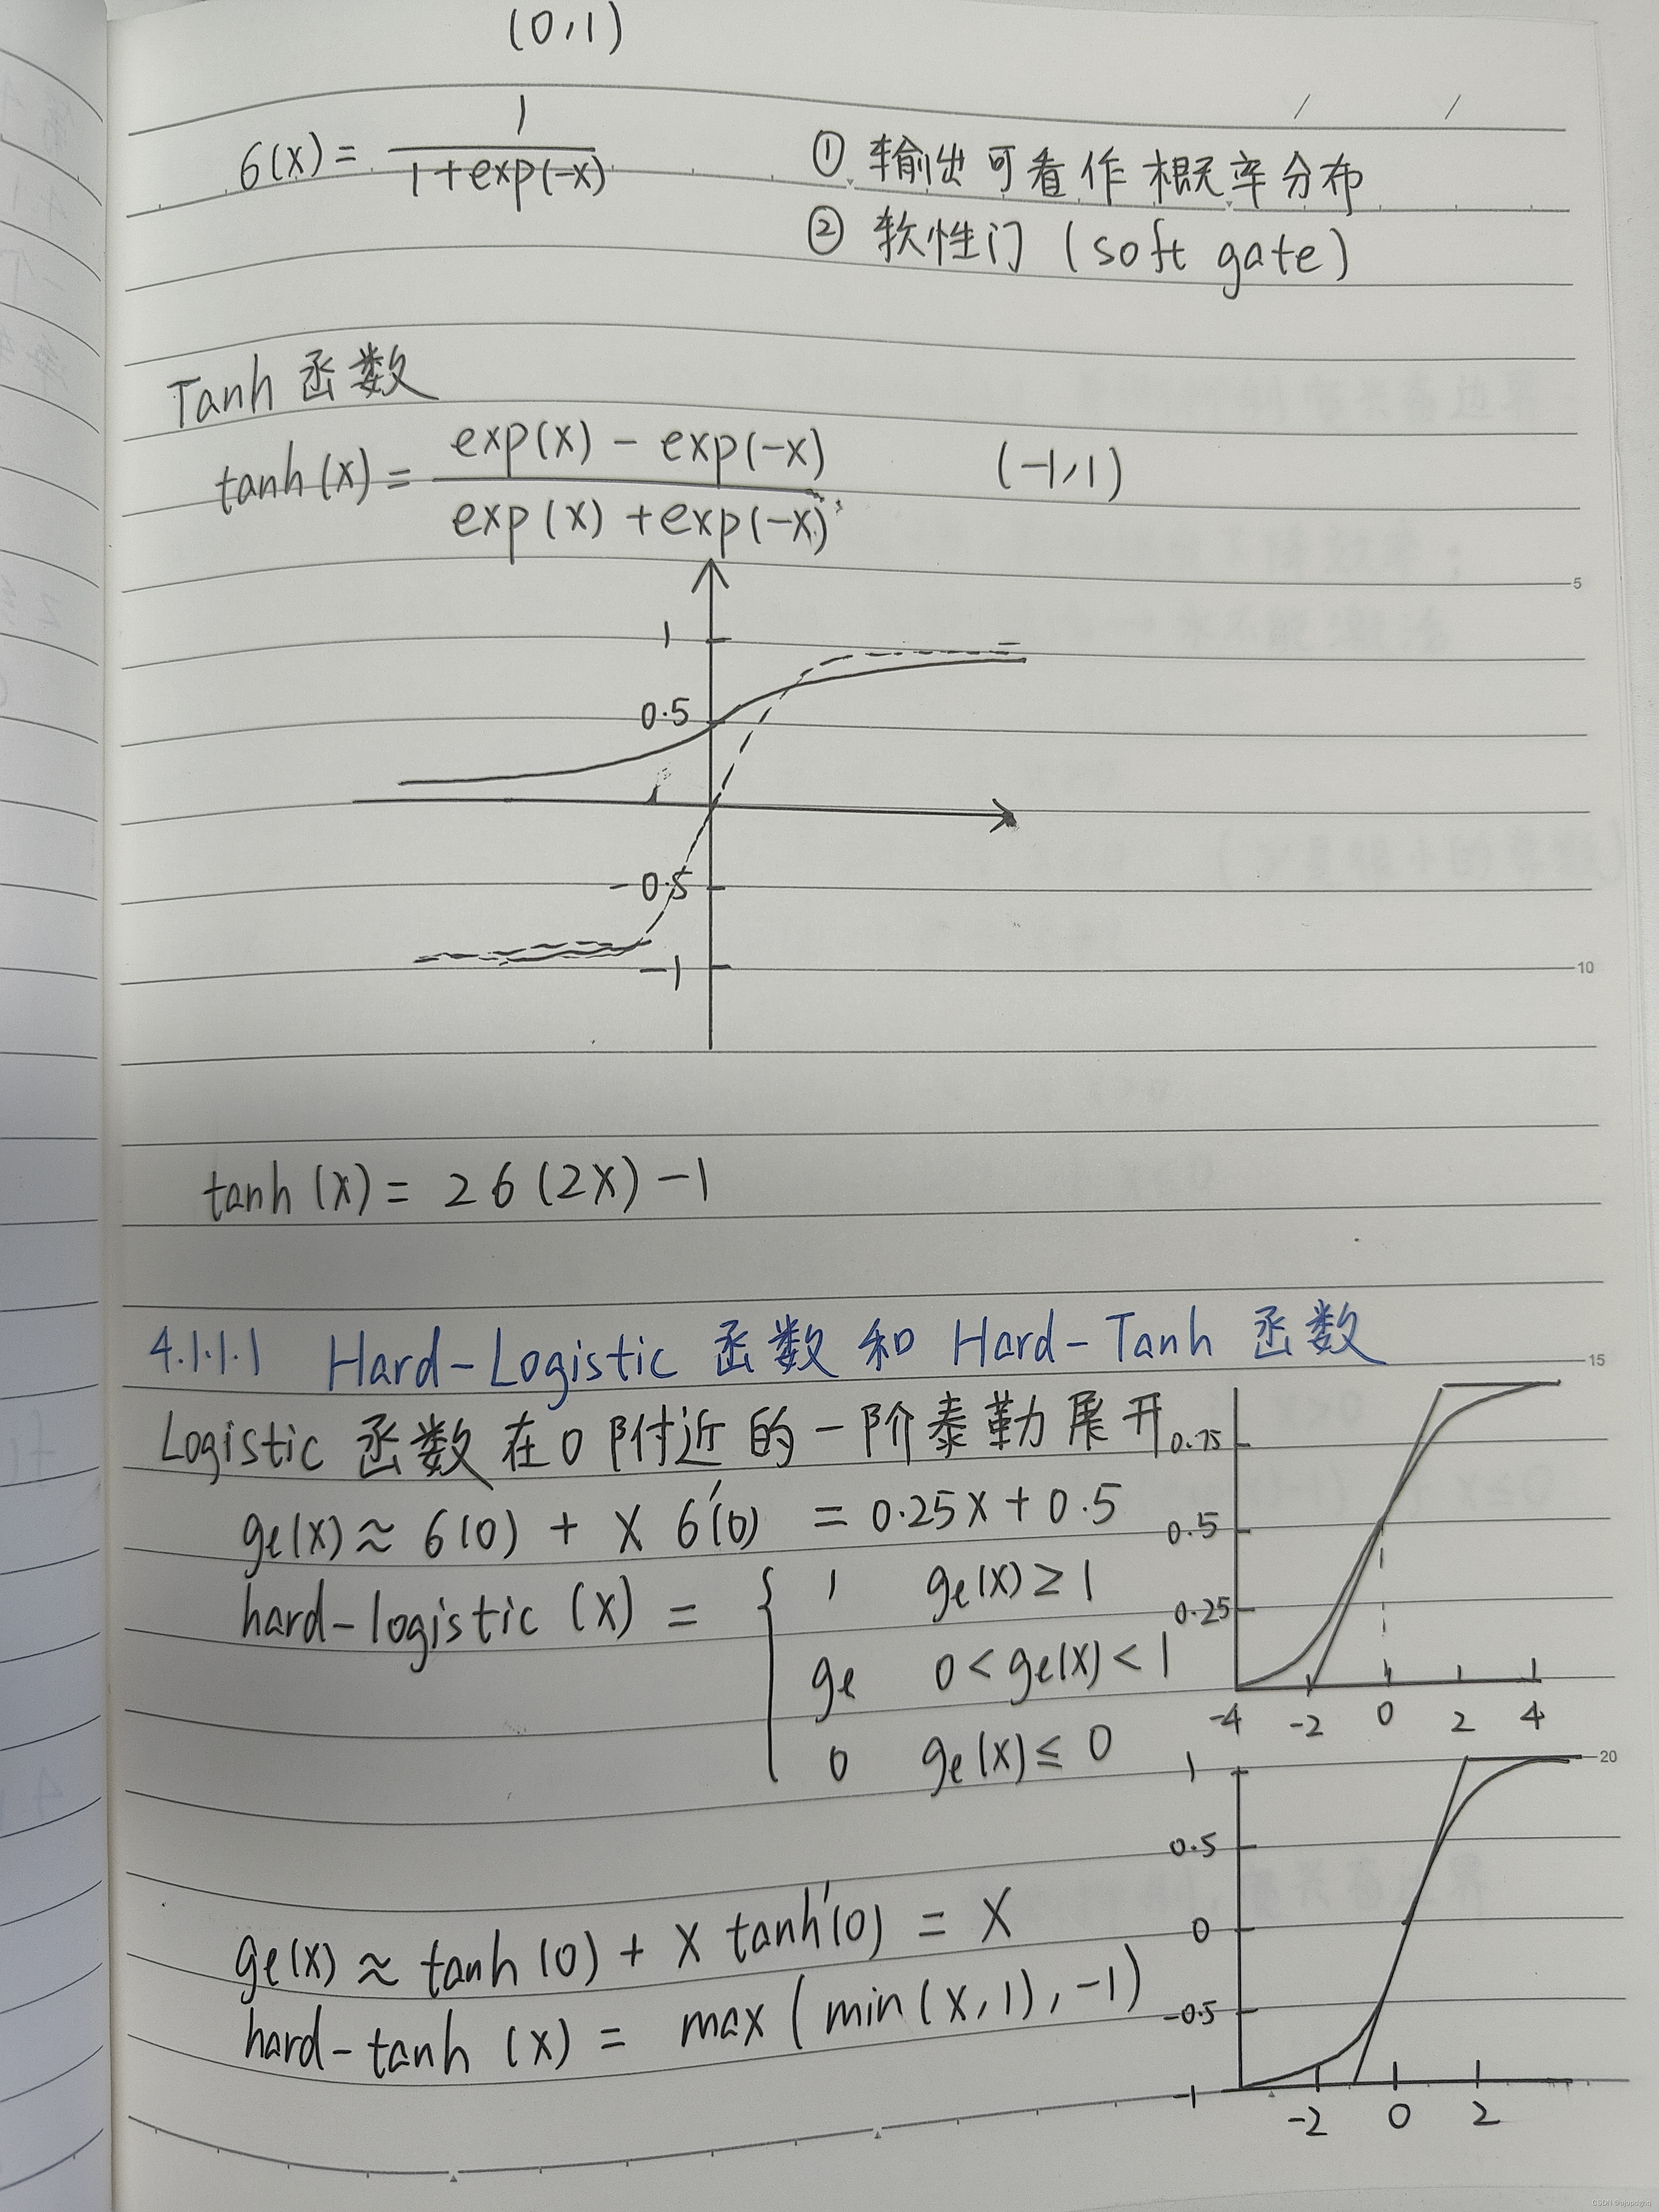 (0,1)
6(x) = 1 / 1+exp(-x)
① 输出可看作概率分布
② 软性门 (soft gate)
Tanh 函数
tanh(x) = exp(x) - exp(-x) / exp(x) + exp(-x)    (-1,1)
5
1
0.5
-0.5
-1
10
tanh(x) = 26(2x) -1
4.1.1.1 Hard-Logistic 函数 和 Hard-Tanh 函数
15
Logistic 函数 在 0 附近的一阶泰勒展开
ge(x) ≈ 6(0) + x 6'(0) = 0.25x + 0.5
hard-logistic (x) = { 1  ge(x) ≥ 1
ge  0 < ge(x) < 1
0  ge(x) ≤ 0
0.75
0.5
0.25
-4 -2 0 2 4
20
ge(x) ≈ tanh(0) + x tanh'(0) = x
hard-tanh (x) = max(min(x,1),-1)
1
0.5
0
-0.5
-1
-2 0 2